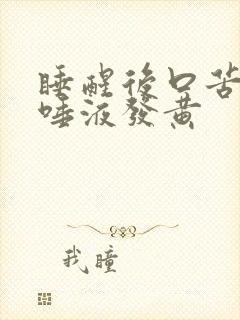 睡醒後口苦
唾液發黃
我瞳